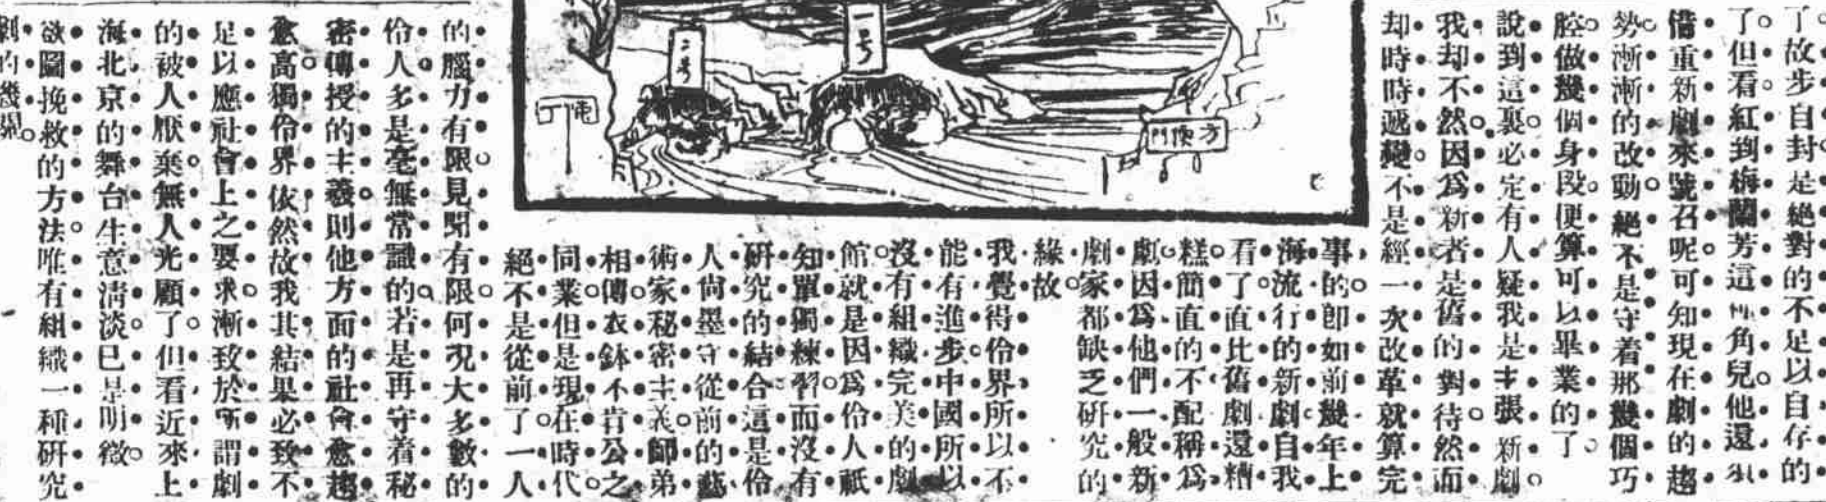 了故步自封是絕對的不足以自存的
了但看紅到梅蘭芳這角兒他還須
借重新劇來號召呢可知現在劇的趨
勢漸漸的改動絕不是守着那幾個巧
腔做幾個身段便算可以畢業的了
說到這裏必定有人疑我是主張新劇
我却不然因爲新者是舊的對待然而
却時時遞變不是經一次改革就算完
事的卽如前幾年上
海流行的新劇自我
看了直比舊劇還糟
糕簡直的不配稱爲
劇因爲他們一般新
劇家都缺乏硏究的
緣故
我覺得伶界所以不
能有進步中國所以
沒有組織完美的劇
館就是因爲伶人祇
知單獨練習而沒有
硏究的結合這是伶
人尙墨守從前的藝
術家秘密主義師弟
相傳衣鉢不肯公之
同業但是現在時代
絕不是從前了一人
的腦力有限見聞有限何况大多數的
伶人多是毫無常識的若是再守着秘
密傳授的主義則他方面的社會愈趨
愈高獨伶界依然故我其結果必致不
足以應社會上之要求漸致於所謂劇
的被人厭棄無人光顧了但看近來上
海北京的舞台生意淸淡已是明徵
欲圖挽救的方法唯有組織一種硏究
劇的機關
一号
二号
便門
方便門